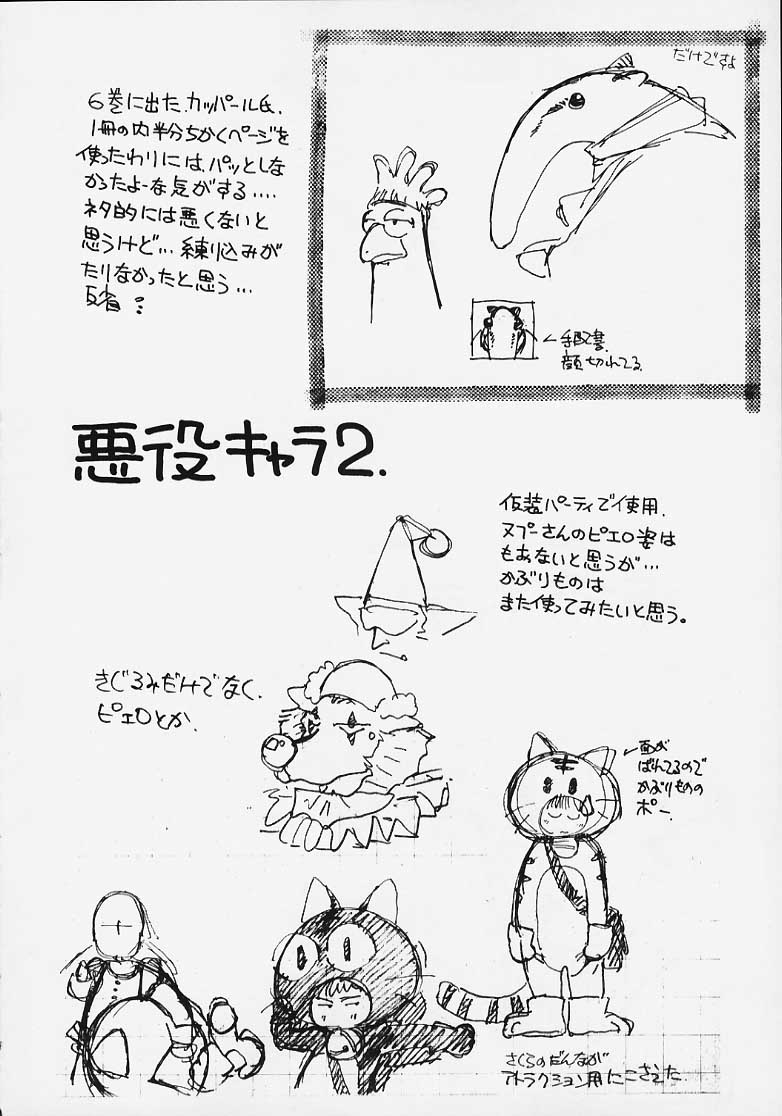 6巻に出た、カッパール氏、
1冊の内半分ちかくページを
使ったわりには、パッとしな
かったよーな気がする....
ネタ的には悪くないと
思うけど…練り込みが
たりなかったと思う…
反省…
だけですよ
←手配書
顔切れてる
悪役キャラ2.
仮装パーティで使用.
ヌプーさんのピエロ姿は
もぉないと思うが…
かぶりものは
また使ってみたいと思う。
きぐるみだけでなく、
ピエロとか、
←面が
ばんてるので
かぶりものの
ポー
さくらのだんなが
アトラクション用にこさえた